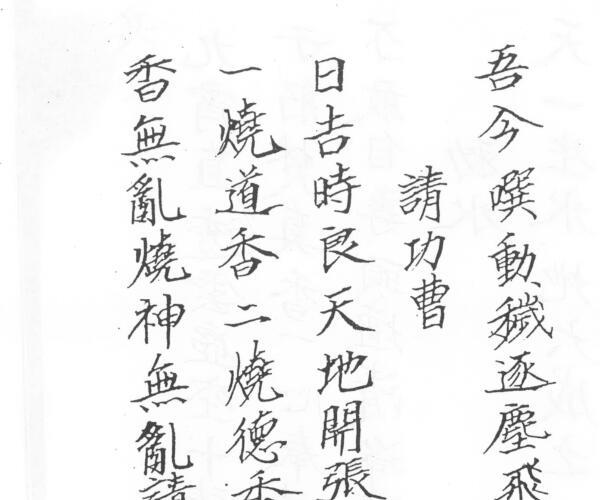 吾今噀動穢逐塵飛
請功曹
日吉時良天地開張
一燒道香二燒德香
香無亂燒神無亂請